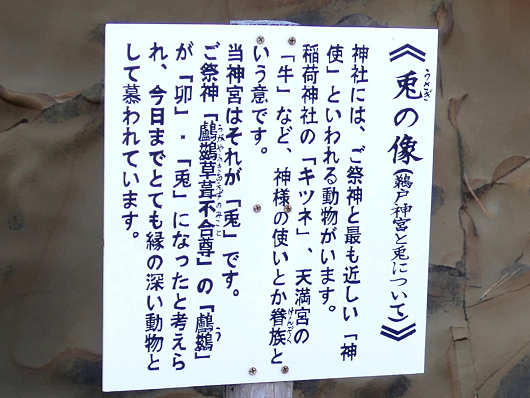 《兎の像(鵜戸神宮と兎について)》
神社には、ご祭神と最も近しい「神
使」といわれる動物がいます。
稲荷神社の「キツネ」、天満宮の
「牛」など、神様の使いとか眷族と
いう意です。
当神宮はそれが「兎」です。
ご祭神「鸕鷀草葺不合尊」の「鸕鷀」
が「卯」・「兎」になったと考えら
れ、今日までとても縁の深い動物と
して慕われています。